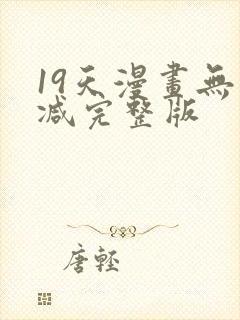 19天漫畫無
减完整版
唐輕